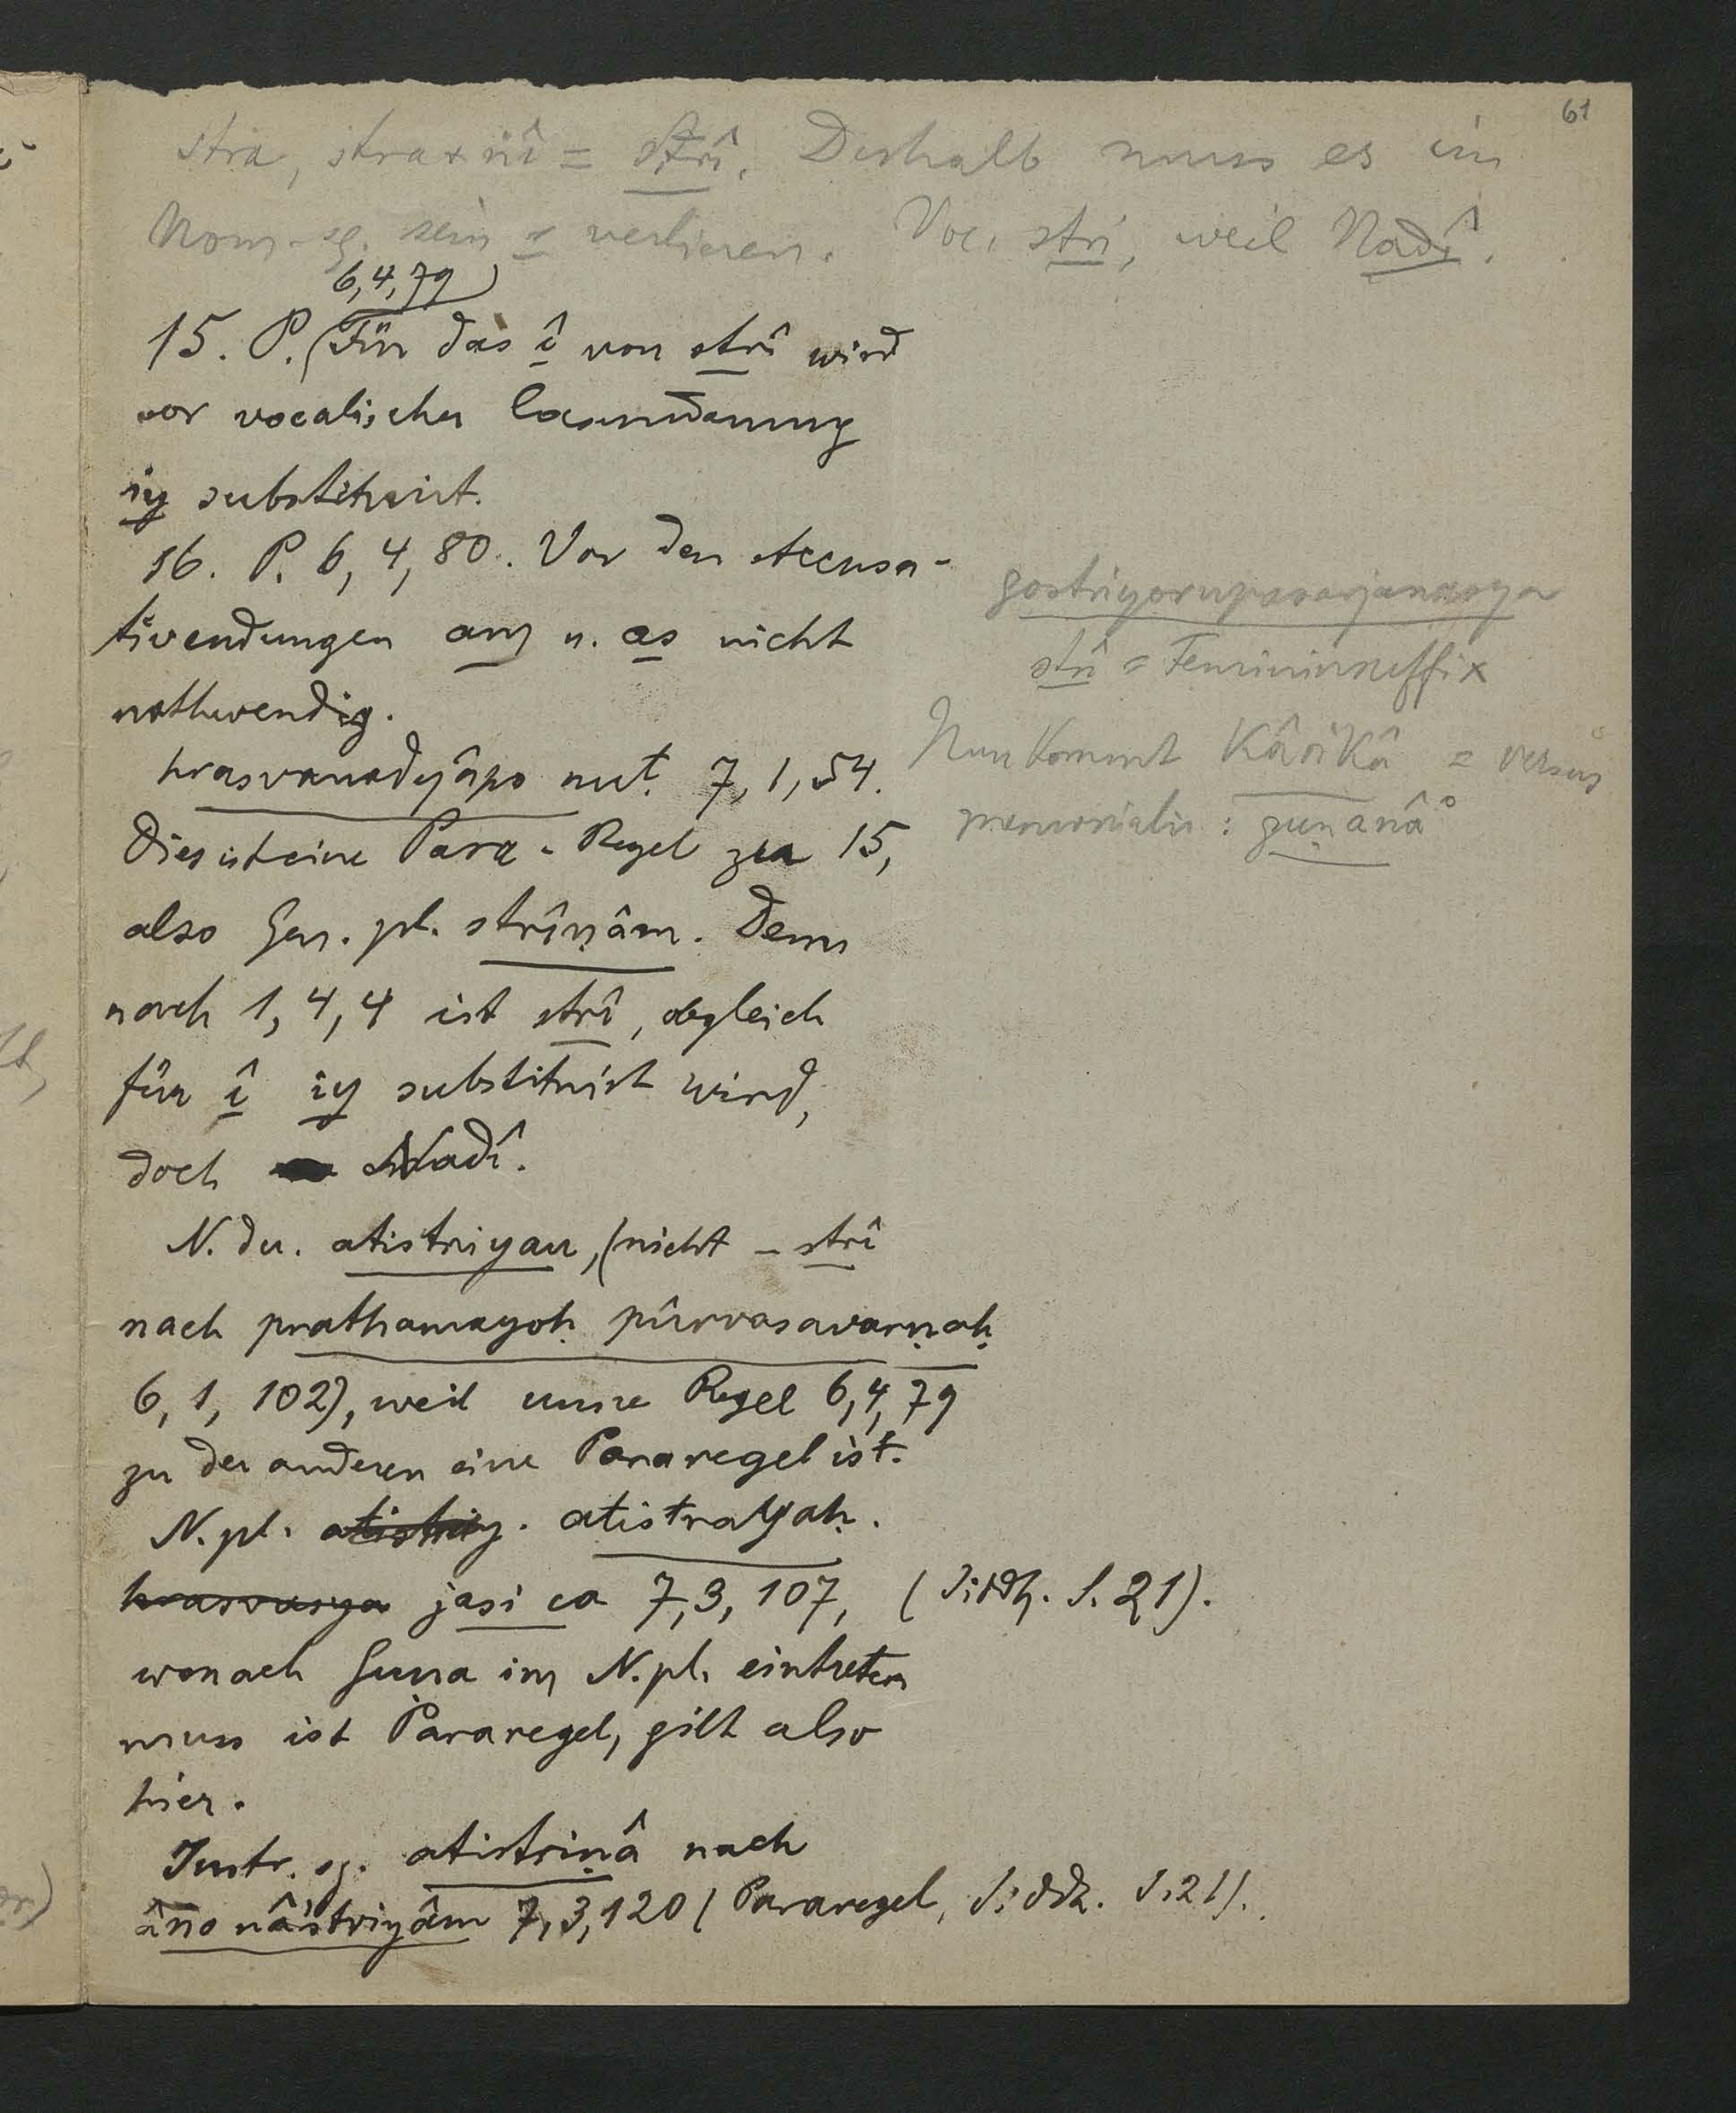 61
stra, stra + nî = strî. Deshalb muss es im
Nom. sg. sein s verlieren. Voc. stri, weil Nadî.
6,4,79
15. P. (Für das î von strî wird
vor vocalischer Casusendung
iy substituirt.
16. P. 6, 4, 80. Vor den Accusa-
tivendungen am u. as nicht
nothwendig.
hrasvanadyâpo nuṭ. 7, 1, 54.
Dies ist eine Para-Regel zu 15,
also Gen. pl. strîṇâm. Denn
nach 1, 4, 4 ist strî, obgleich
für î iy substituirt wird,
doch Nadî.
N. du. atistriyau, (nicht - strî
nach prathamayoḥ pûrvasavarṇaḥ
6, 1, 102), weil unsre Regel 6,4,79
zu der anderen eine Pararegel ist.
N. pl. atistriy. atistrayaḥ.
hrasvasya jasi ca 7, 3, 107, (Siddh. S. 21).
wonach Guṇa im N. pl. eintreten
muss ist Pararegel, gilt also
hier.
Instr. sg. atistriṇâ nach
âṅo nâ'striyâm 7, 3, 120 (Pararegel, Siddh. S. 21).
gostriyorupasarjanasya
strî = Femininsuffix
Nun kommt Kârikâ = versus
memorialis: guṇanâ°